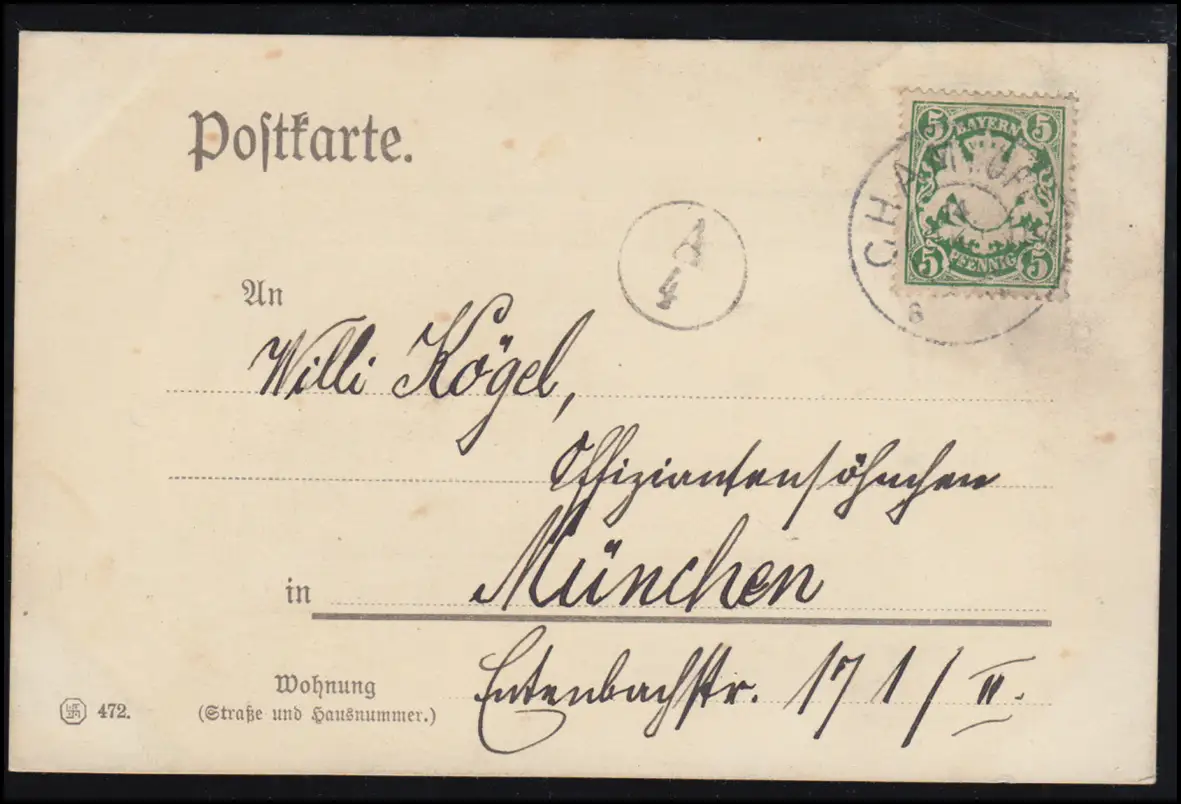 Postkarte.
5 BAYERN 5
5 PFENNIG 5
CHAM
8
A
4
An
Willi Kögel,
Offiziantensöhnchen
in München
Wohnung
(Straße und Hausnummer.)
Entenbachstr. 17 1/II.
472.